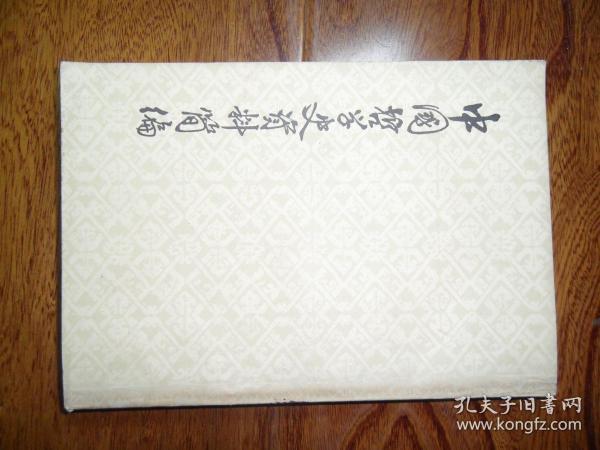 中國哲学史資料簡編
孔夫子旧書网
www.kongfz.com